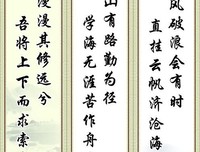 风破浪会有时
直挂云帆济沧海
山有路勤为径
学海无涯苦作舟
漫漫其修远兮
吾将上下而求索